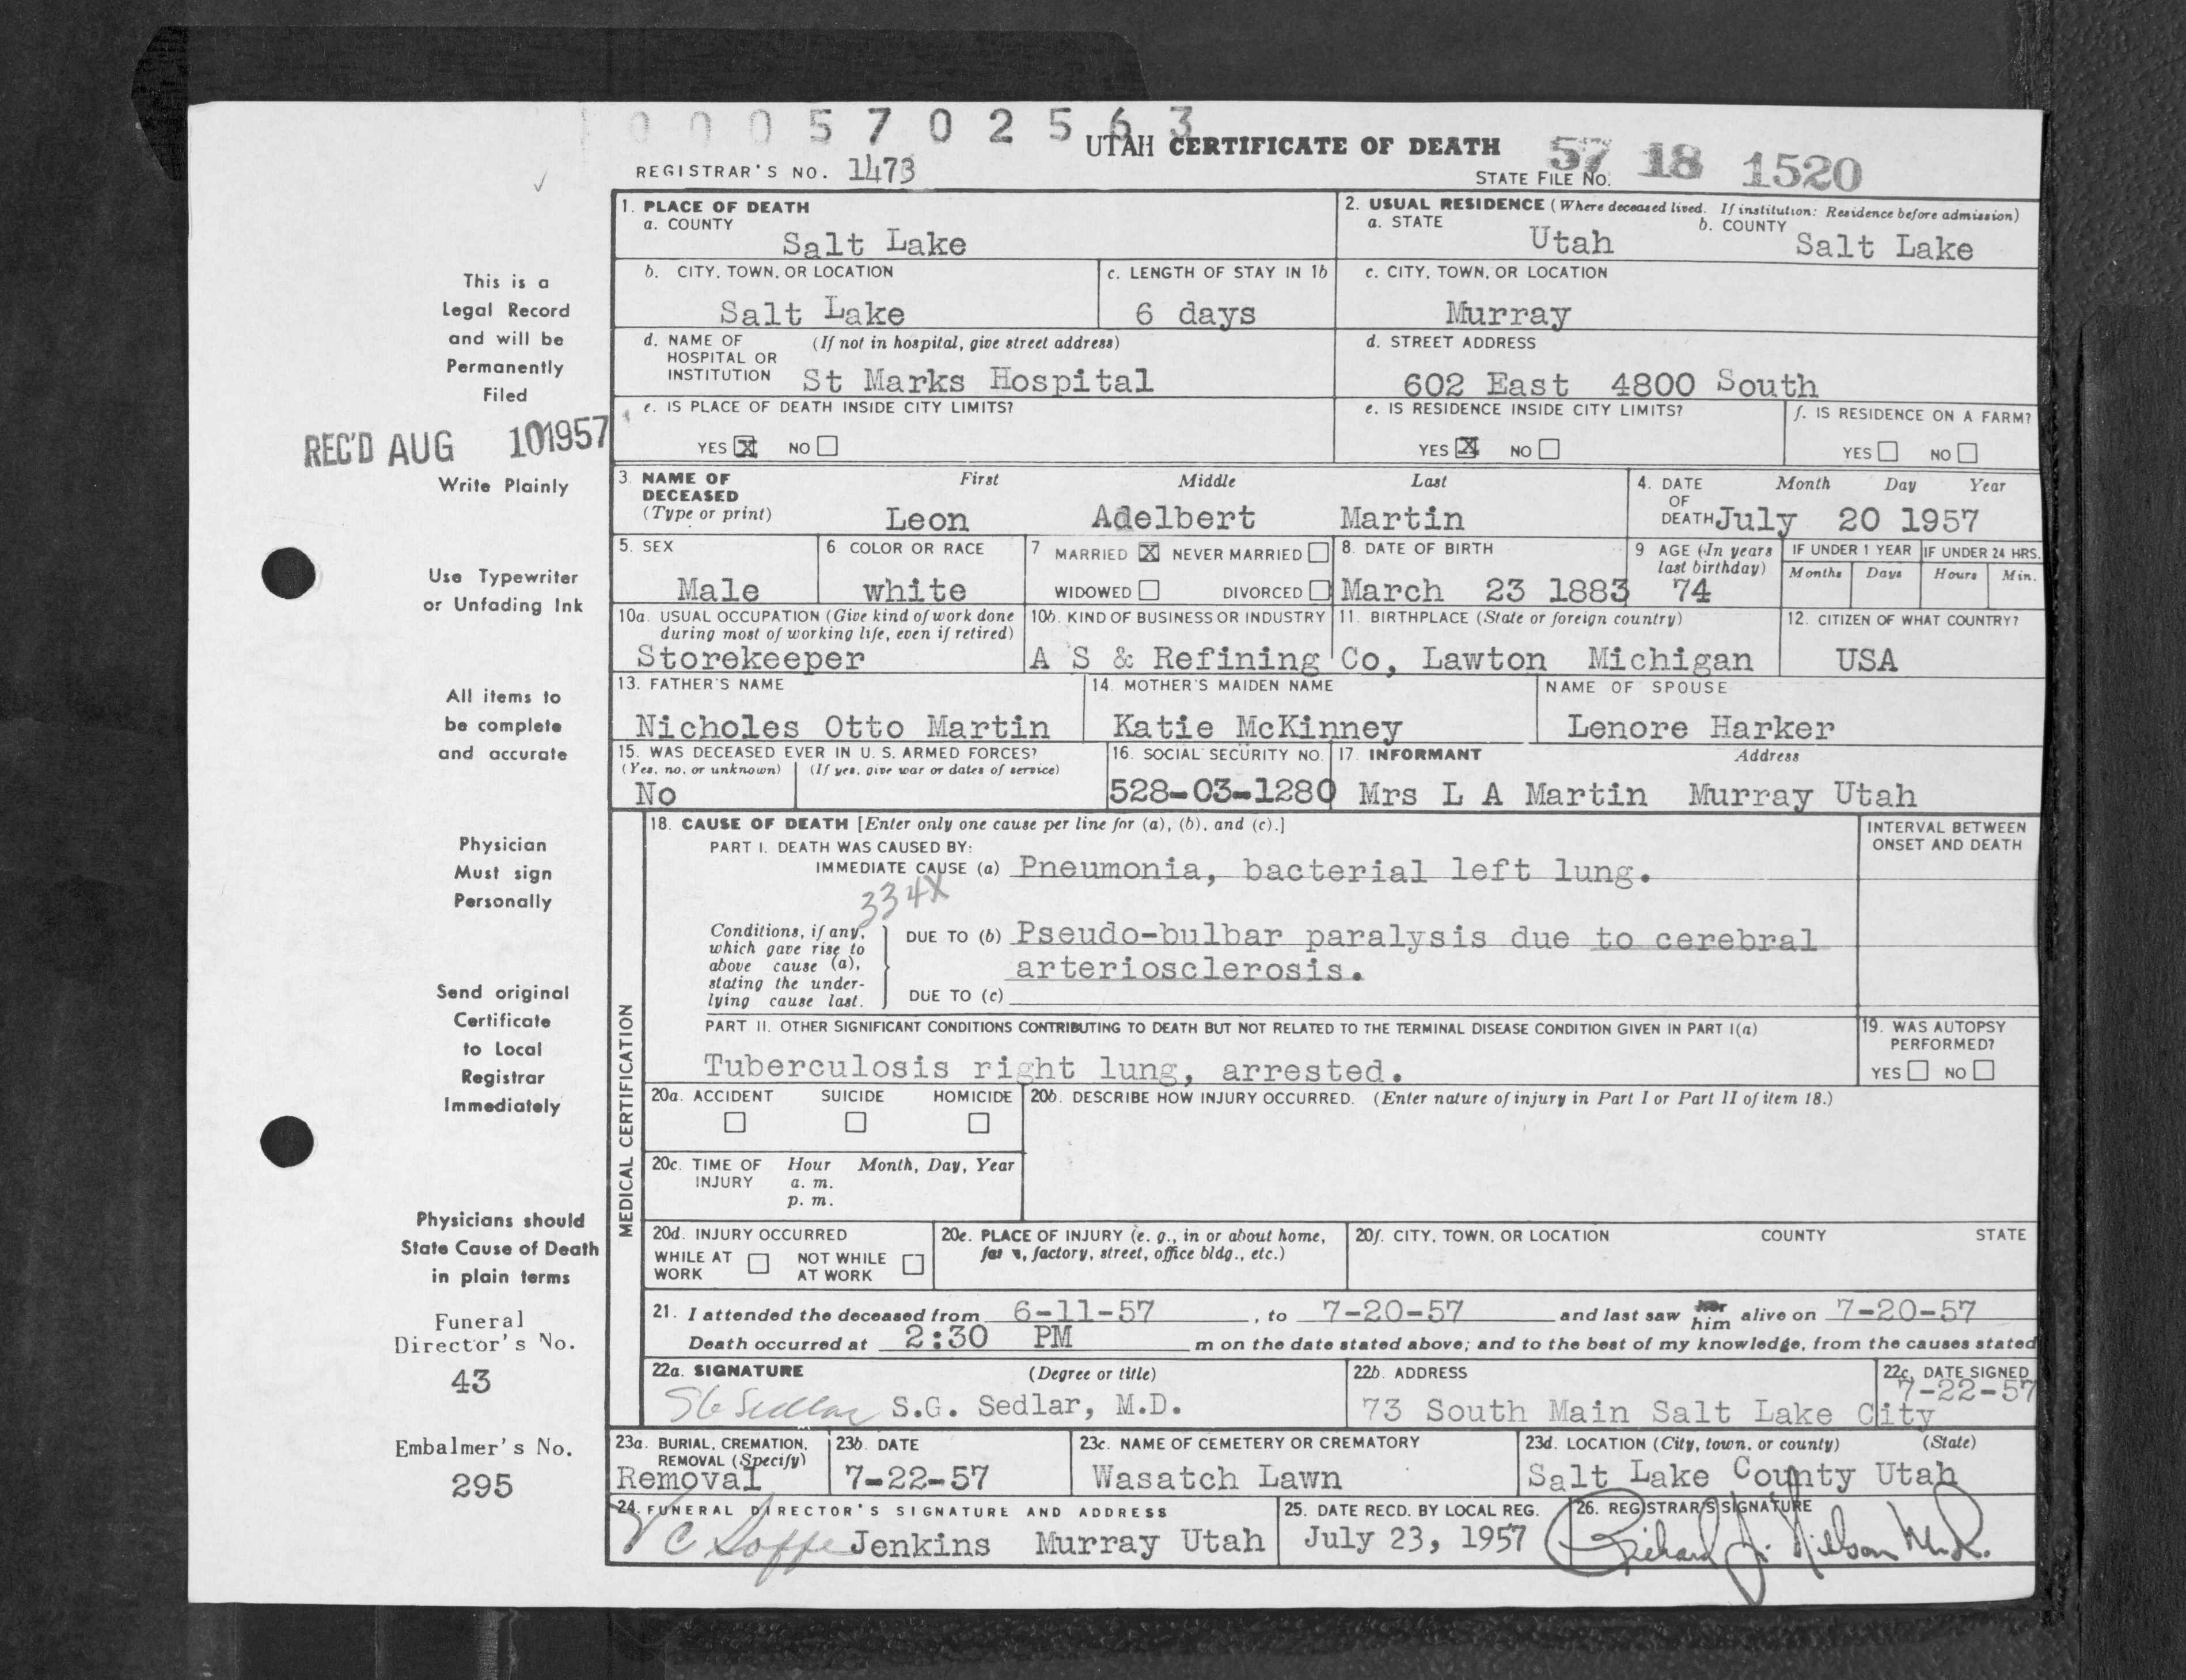 0 0 0 5 7 0 2 5 6 3
UTAH CERTIFICATE OF DEATH
REGISTRAR'S NO. 1473
STATE FILE NO. 57 18 1520
1. PLACE OF DEATH
a. COUNTY
Salt Lake
2. USUAL RESIDENCE (Where deceased lived. If institution: Residence before admission)
a. STATE Utah b. COUNTY Salt Lake
b. CITY, TOWN, OR LOCATION
Salt Lake
c. LENGTH OF STAY IN 1b
6 days
c. CITY, TOWN, OR LOCATION
Murray
d. NAME OF HOSPITAL OR INSTITUTION (If not in hospital, give street address)
St Marks Hospital
d. STREET ADDRESS
602 East 4800 South
e. IS PLACE OF DEATH INSIDE CITY LIMITS?
YES X NO
e. IS RESIDENCE INSIDE CITY LIMITS?
YES X NO
f. IS RESIDENCE ON A FARM?
YES NO
3. NAME OF DECEASED (Type or print)
First Middle Last
Leon Adelbert Martin
4. DATE OF DEATH Month Day Year
July 20 1957
5. SEX
Male
6. COLOR OR RACE
white
7 MARRIED X NEVER MARRIED
WIDOWED DIVORCED
8. DATE OF BIRTH
March 23 1883
9 AGE (In years last birthday)
74
IF UNDER 1 YEAR
Months Days
IF UNDER 24 HRS.
Hours Min.
10a. USUAL OCCUPATION (Give kind of work done during most of working life, even if retired)
Storekeeper
10b. KIND OF BUSINESS OR INDUSTRY
A S & Refining Co,
11. BIRTHPLACE (State or foreign country)
Lawton Michigan
12. CITIZEN OF WHAT COUNTRY?
USA
13. FATHER'S NAME
Nicholes Otto Martin
14. MOTHER'S MAIDEN NAME
Katie McKinney
NAME OF SPOUSE
Lenore Harker
15. WAS DECEASED EVER IN U. S. ARMED FORCES?
(Yes, no, or unknown) (If yes, give war or dates of service)
No
16. SOCIAL SECURITY NO.
528-03-1280
17. INFORMANT Address
Mrs L A Martin Murray Utah
MEDICAL CERTIFICATION
18. CAUSE OF DEATH [Enter only one cause per line for (a), (b), and (c).]
INTERVAL BETWEEN ONSET AND DEATH
PART I. DEATH WAS CAUSED BY:
IMMEDIATE CAUSE (a) Pneumonia, bacterial left lung.
334X
Conditions, if any, which gave rise to above cause (a), stating the underlying cause last.
DUE TO (b) Pseudo-bulbar paralysis due to cerebral
arteriosclerosis.
DUE TO (c)
PART II. OTHER SIGNIFICANT CONDITIONS CONTRIBUTING TO DEATH BUT NOT RELATED TO THE TERMINAL DISEASE CONDITION GIVEN IN PART I(a)
Tuberculosis right lung, arrested.
19. WAS AUTOPSY PERFORMED?
YES NO
20a. ACCIDENT SUICIDE HOMICIDE
20b. DESCRIBE HOW INJURY OCCURRED. (Enter nature of injury in Part I or Part II of item 18.)
20c. TIME OF INJURY Hour Month, Day, Year
a. m.
p. m.
20d. INJURY OCCURRED
WHILE AT WORK NOT WHILE AT WORK
20e. PLACE OF INJURY (e. g., in or about home, factory, street, office bldg., etc.)
20f. CITY, TOWN, OR LOCATION COUNTY STATE
21. I attended the deceased from 6-11-57, to 7-20-57 and last saw her him alive on 7-20-57
Death occurred at 2:30 PM m on the date stated above; and to the best of my knowledge, from the causes stated
22a. SIGNATURE (Degree or title)
SG Sedlar S.G. Sedlar, M.D.
22b. ADDRESS
73 South Main Salt Lake City
22c. DATE SIGNED
7-22-57
23a. BURIAL, CREMATION, REMOVAL (Specify)
Removal
23b. DATE
7-22-57
23c. NAME OF CEMETERY OR CREMATORY
Wasatch Lawn
23d. LOCATION (City, town, or county) (State)
Salt Lake County Utah
24. FUNERAL DIRECTOR'S SIGNATURE AND ADDRESS
Jenkins Murray Utah
25. DATE RECD. BY LOCAL REG.
July 23, 1957
26. REGISTRAR'S SIGNATURE
Richard J. Nilson M.D.
This is a
Legal Record
and will be
Permanently
Filed
REC'D AUG 10 1957
Write Plainly
Use Typewriter
or Unfading Ink
All items to
be complete
and accurate
Physician
Must sign
Personally
Send original
Certificate
to Local
Registrar
Immediately
Physicians should
State Cause of Death
in plain terms
Funeral
Director's No.
43
Embalmer's No.
295